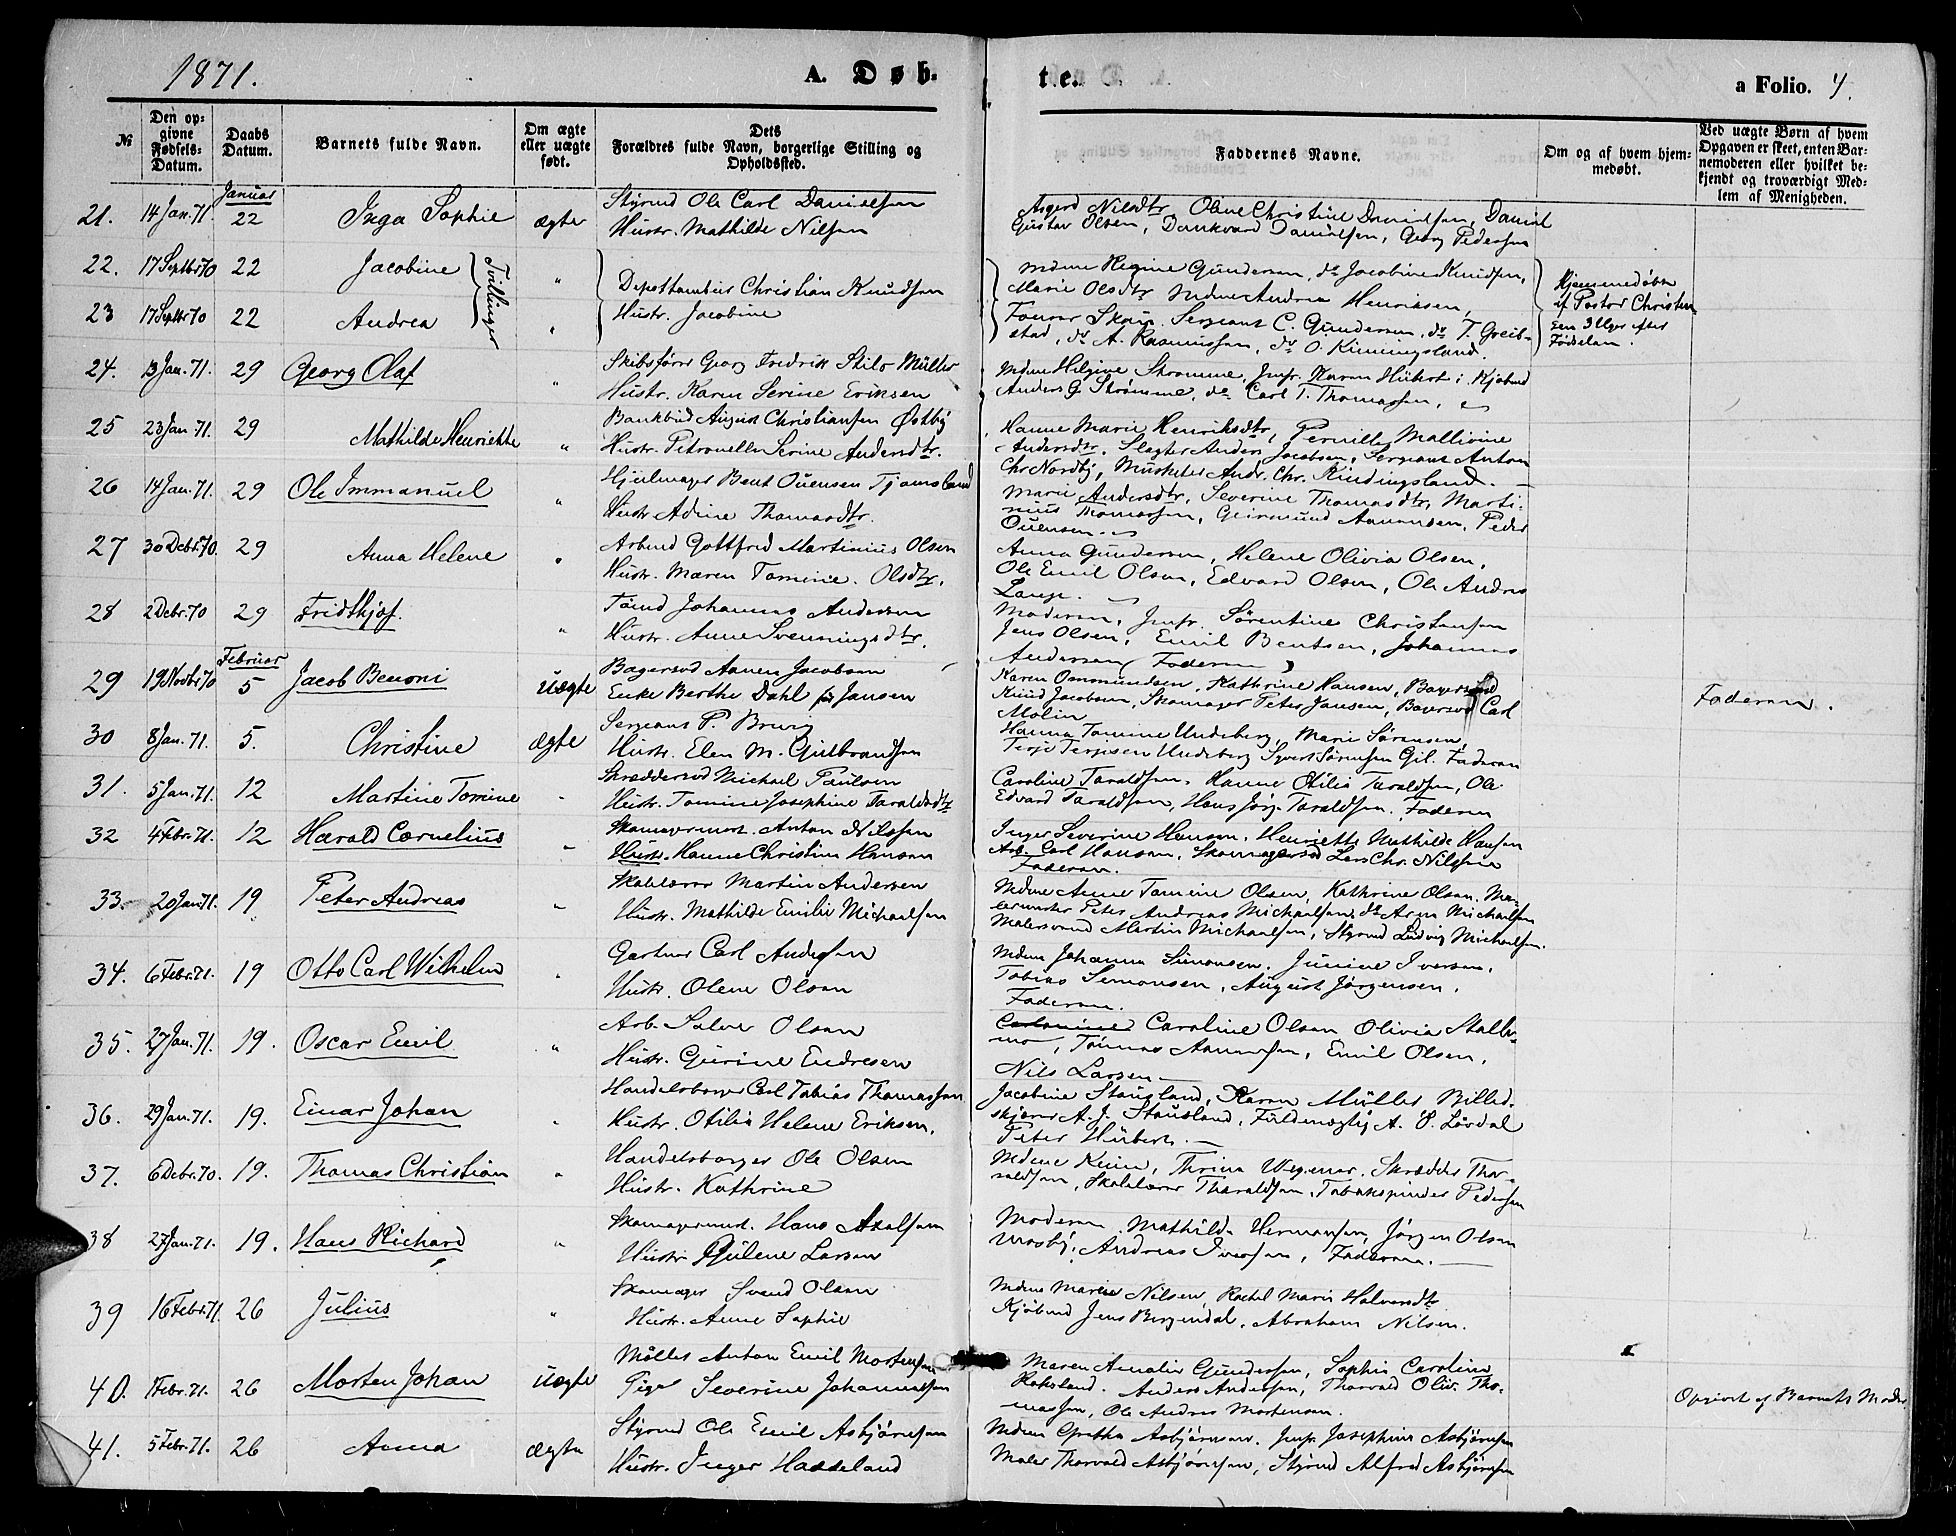 1871.
A. Døb-
te.
a Folio. 4.
№
Den op-
givne
Fødsels-
Datum.
Daabs
Datum.
Barnets fulde Navn.
Om ægte
eller uægte
født.
Dets
Forældres fulde Navn, borgerlige Stilling og
Opholdssted.
Faddernes Navne.
Om og af hvem hjem-
medøbt.
Ved uægte Børn af hvem
Opgaven er skeet, enten Bar-
nemoderen eller hvilket be-
kjendt og troværdigt Med-
lem af Menigheden.
Januar
21. 14 Jan. 71. 22 Inga Sophie ægte
Styrmd Ole Carl Danielsen
Hustr. Mathilde Nilsen
Asgerd Nilsdtr Olene Christine Danielsen, Daniel
Gustav Olsen, Dankvard Danielsen, Georg Pedersen
22. 17 Septbr 70 22 Jacobine "
23 17 Septbr 70 22 Andrea "
Tvillinger
Depottambur Christian Knudsen
Hustr. Jacobine
Mdme Regine Gundersen, do Jacobine Knudsen,
Marie Olsdtr Mdme Andrea Henriksen,
Sergeant C. Gundersen, dr T. Greib-
stad, dr A. Rasmussen, dr O. Kinningsland.
Hjemmedøbte
af Pastor Christen
sen 3 Uger efter
Fødselen.
24. 13 Jan. 71. 29 Georg Olaf "
Skibsfører Georg Fredrik Stilo Müller
Hustr. Karen Serine Eriksen
Mdme Helgine Stromme, Jmfr. Karen Hübert, Kjøbmd
Anders G. Strømme, do Carl T. Thomassen,
25 23 Jan 71. 29 Mathilde Henriette "
Bankbud August Christiansen Østby
Hustr. Petronelle Serine Andersdtr.
Hanne Marie Henriksdtr, Pernille Mallvine
Andersdtr, Slagter Anders Jacobsen, Sergeant Anton
Chr Nordby, Musketer Andr. Chr. Rindingsland.
26 14 Jan. 71. 29 Ole Immanuel "
Hjulmager Bent Ouensen Tjomsland
Hustr Adine Thomasdtr.
Marie Andersdtr, Severine Thomasdtr, Marti-
nius Thomassen, Geirmund Aanensen, Peder
Ouensen.
27 30 Decbr. 70. 29 Anna Helene "
Arbmd Gottfred Martinius Olsen
Hustr. Maren Tomine Olsdtr.
Anna Gundersen, Helene Olivia Olsen,
Ole Emil Olsen, Edvard Olsen, Ole Andres
Lange.
28 2 Decbr. 70 29 Fridthjof. "
Tømd Johannes Andersen
Hustr. Anne Svenningsdtr.
Moderen, Jmfr. Sørentine Christensen
Jens Olsen, Emil Bentsen, Johannes
Andersen (Faderen)
Februar
29 19 Novbr 70 5 Jacob Benoni uægte
Bagersvd Aanen Jacobsen
Enke Berthe Dahl f. Jansen
Karen Ommundsen, Kathrine Hansen, Bagersvd
Knud Jacobsen, Skomager Peter Jansen, Bagersvd Carl
Molin
Faderen.
30 8 Jan. 71. 5. Christine ægte
Sergeant P. Bruy
Hustr. Elen M. Gulbrandsen
Hanna Tomine Undeberg, Marie Sørensen,
Terje Terjesen Undeberg Syvert Sørensen Gil. Faderen
31. 5 Jan. 71. 12 Martine Tomine "
Skræddersvd Michael Paulsen
Hustr. Tomine Josephine Taraldsdtr
Caroline Taraldsen, Hanne Otilia Taraldsen, Ole
Edvard Taraldsen, Hans Jørg. Taraldsen, Faderen
32 4 Febr. 71. 12 Harald Cornelius "
Skomagermest. Anton Nilssen
Hustr. Hanne Christine Hansen
Inger Severine Hansen, Henriette Mathilde Hansen
Arb. Carl Hansen, Skomagersvd Lars Chr. Nilssen
Faderen.
33. 20 Jan 71. 19 Peter Andreas "
Skolelærer Martin Andersen
Hustr. Mathilde Emilie Michaelsen
Mdme Anne Tomine Olsen, Kathrine Olsen, Ma-
lermester Peter Andreas Michaelsen, do Aren Michaelsen
Malersvend Martin Michaelsen, Styrmd Ludvig Michaelsen.
34. 6 Febr. 71. 19 Otto Carl Wilhelm "
Gartner Carl Andersen
Hustr. Olene Olsen
Mdme Johanna Simonsen, Junine Iversen,
Tobias Semonsen, August Jørgensen,
Faderen.
35. 27 Jan. 71. 19. Oscar Emil "
Arb. Salve Olsen
Hustr. Gurine Endresen
Caroline Olsen Olivia Stalle-
mo, Tønnes Aanensen, Emil Olsen,
Nils Larsen
36. 29 Jan. 71. 19. Einar Johan "
Handelsborger Carl Tobias Thomassen
Hustr. Otilia Helene Eriksen.
Jacobine Stausland, Karen Müller Billed-
skjærer A. J. Stausland, Fuldmægtig A. O. Lördal
Peter Hübert.
37. 6 Decbr. 70. 19. Thomas Christian "
Handelsborger Ole Olsen
Hustr. Kathrine
Mdme Keim, Thrina Wegener, Skrædder Tho-
raldsen, Skolelærer Tharaldsen, Tobakspinder Pedersen
38 27 Jan. 71. 19. Hans Richard "
Skomagermest. Hans Axelsen
Hustr. Gulene Larsen
Moderen, Mathilde Hermansen, Jørgen Olsen
Mosby, Andreas Iversen, Faderen.
39 16 Febr. 71. 26 Julius "
Skomager Svend Olsen
Hustr. Anne Sophie
Mdme Marie Nilsen, Rachel Marie Halvorsdtr
Kjøbmd Jens Bergendal, Abraham Nilsen.
40. 1 Febr. 71. 26 Morten Johan uægte
Møller Anton Emil Mortensen
Pige Severine Johannessen
Maren Amalie Gundersen, Sophie Caroline
Roksland, Anders Andersen, Thorvald Oliv. Tho-
massen, Ole Andres Mortensen.
Opgivet af Barnets Moder
41. 5 Febr. 71. 26 Anna ægte
Styrmd Ole Emil Asbjørnsen
Hustr. Inger Hasseland
Mdme Grethe Asbjørnsen, Jmfr. Josephine Asbjørnsen
Maler Thorvald Asbjørnsen, Styrmd Alfred Asbjørnsen